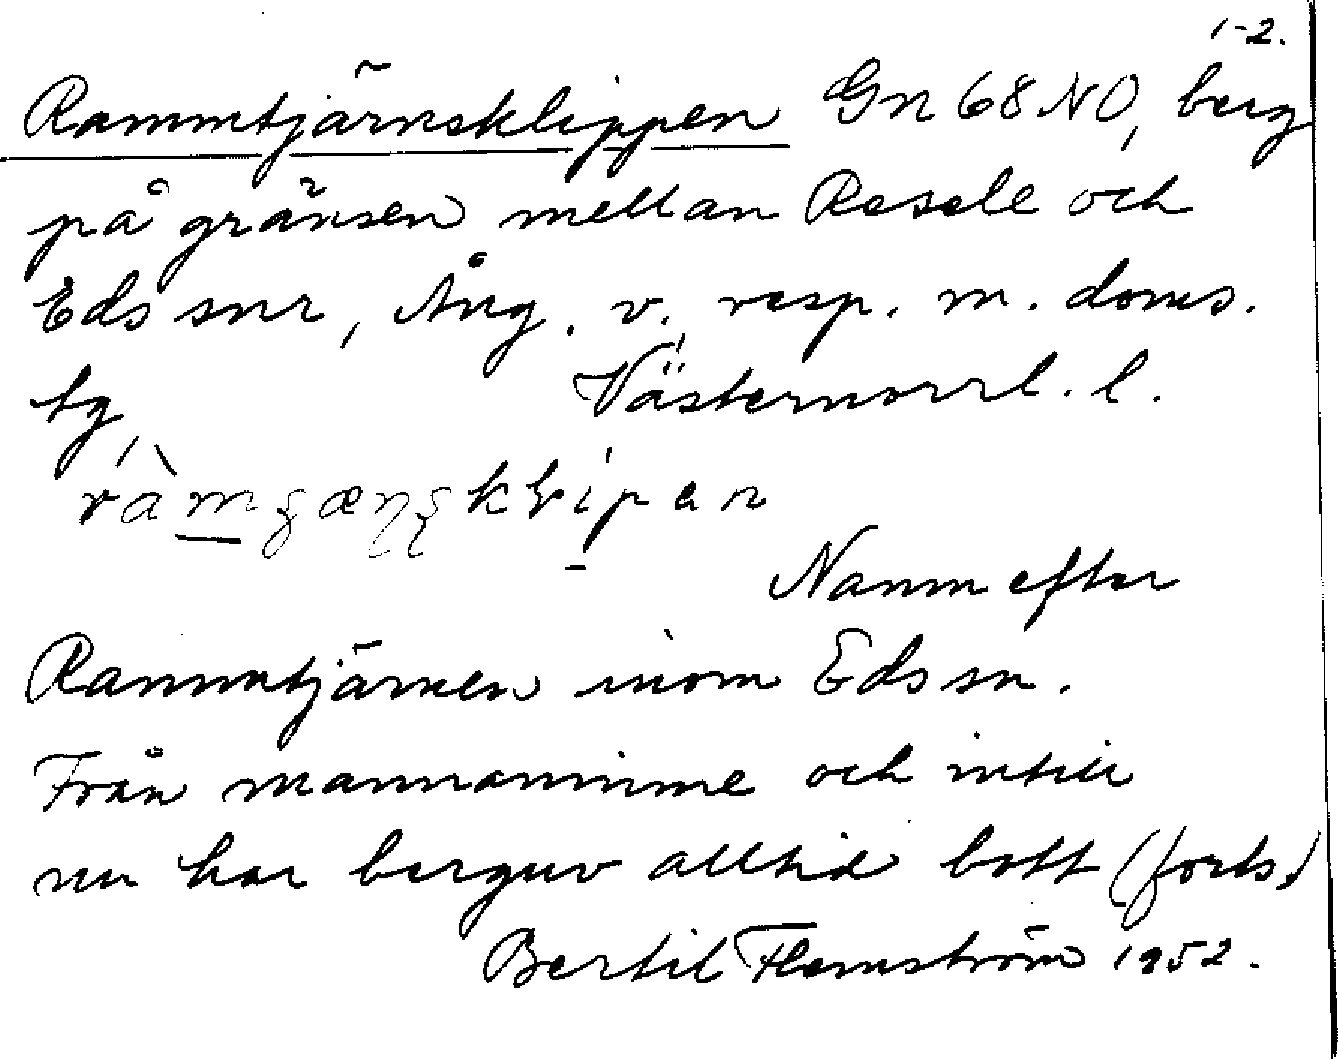 1-2.
Rammtjärnsklippen Gn 68 NO, berg
på gränsen mellan Resele och
Eds snr, Ång. v. resp. m. doms.
tg, Västernorrl. l.
Namn efter
Rammtjärnen inom Eds sn.
Från mannaminne och intill
nu har berguv alltid bott (forts.)
Bertil Flemström 1952.